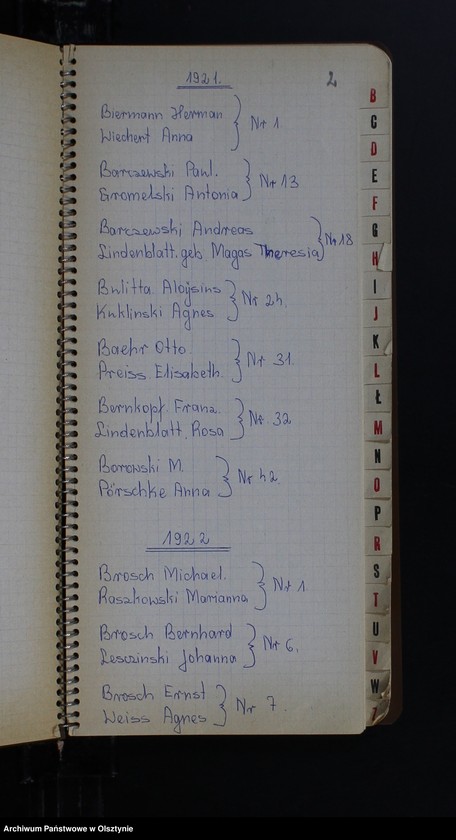 1921.
2
Biermann Herman
Wiechert Anna
Nr 1
Barczewski Paul.
Gromelski Antonia
Nr 13
Barczewski Andreas
Lindenblatt. geb. Magas Theresia
Nr 18
Bulitta Aloysius
Kuklinski Agnes
Nr 24
Baehr Otto.
Preiss Elisabeth.
Nr 31.
Bernkopf. Franz.
Lindenblatt. Rosa
Nr. 32
Borowski M.
Pörschke Anna
Nr 42.
1922
Brosch Michael.
Raszkowski Marianna
Nr 1
Brosch Bernhard
Leszinski Johanna
Nr 6.
Brosch Ernst
Weiss Agnes
Nr 7.
B
C
D
E
F
G
H
I
J
K
L
Ł
M
N
O
P
R
S
T
U
V
W
Archiwum Państwowe w Olsztynie